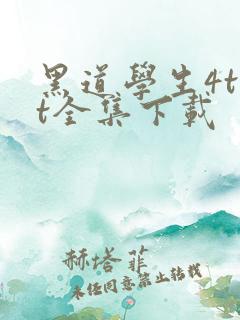 黑道學生4t
t全集下載
赫塔菲
未經同意禁止轉載